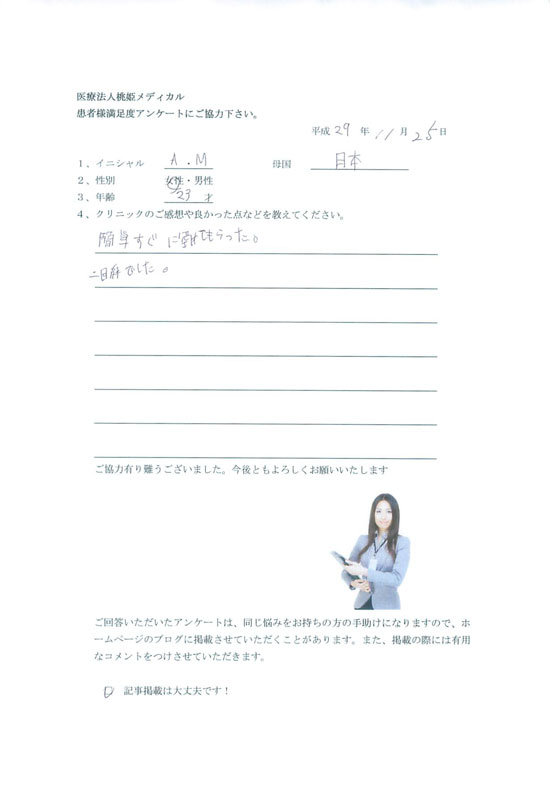 医療法人桃姫メディカル
患者様満足度アンケートにご協力下さい。
平成 29 年 11 月 25 日
1、イニシャル A.M 母国 日本
2、性別 女性・男性
3、年齢 23 才
4、クリニックのご感想や良かった点などを教えてください。
簡単すぐに もらった。
でした。
ご協力有り難うございました。今後ともよろしくお願いいたします
ご回答いただいたアンケートは、同じ悩みをお持ちの方の手助けになりますので、ホ
ームページのブログに掲載させていただくことがあります。また、掲載の際には有用
なコメントをつけさせていただきます。
記事掲載は大丈夫です！